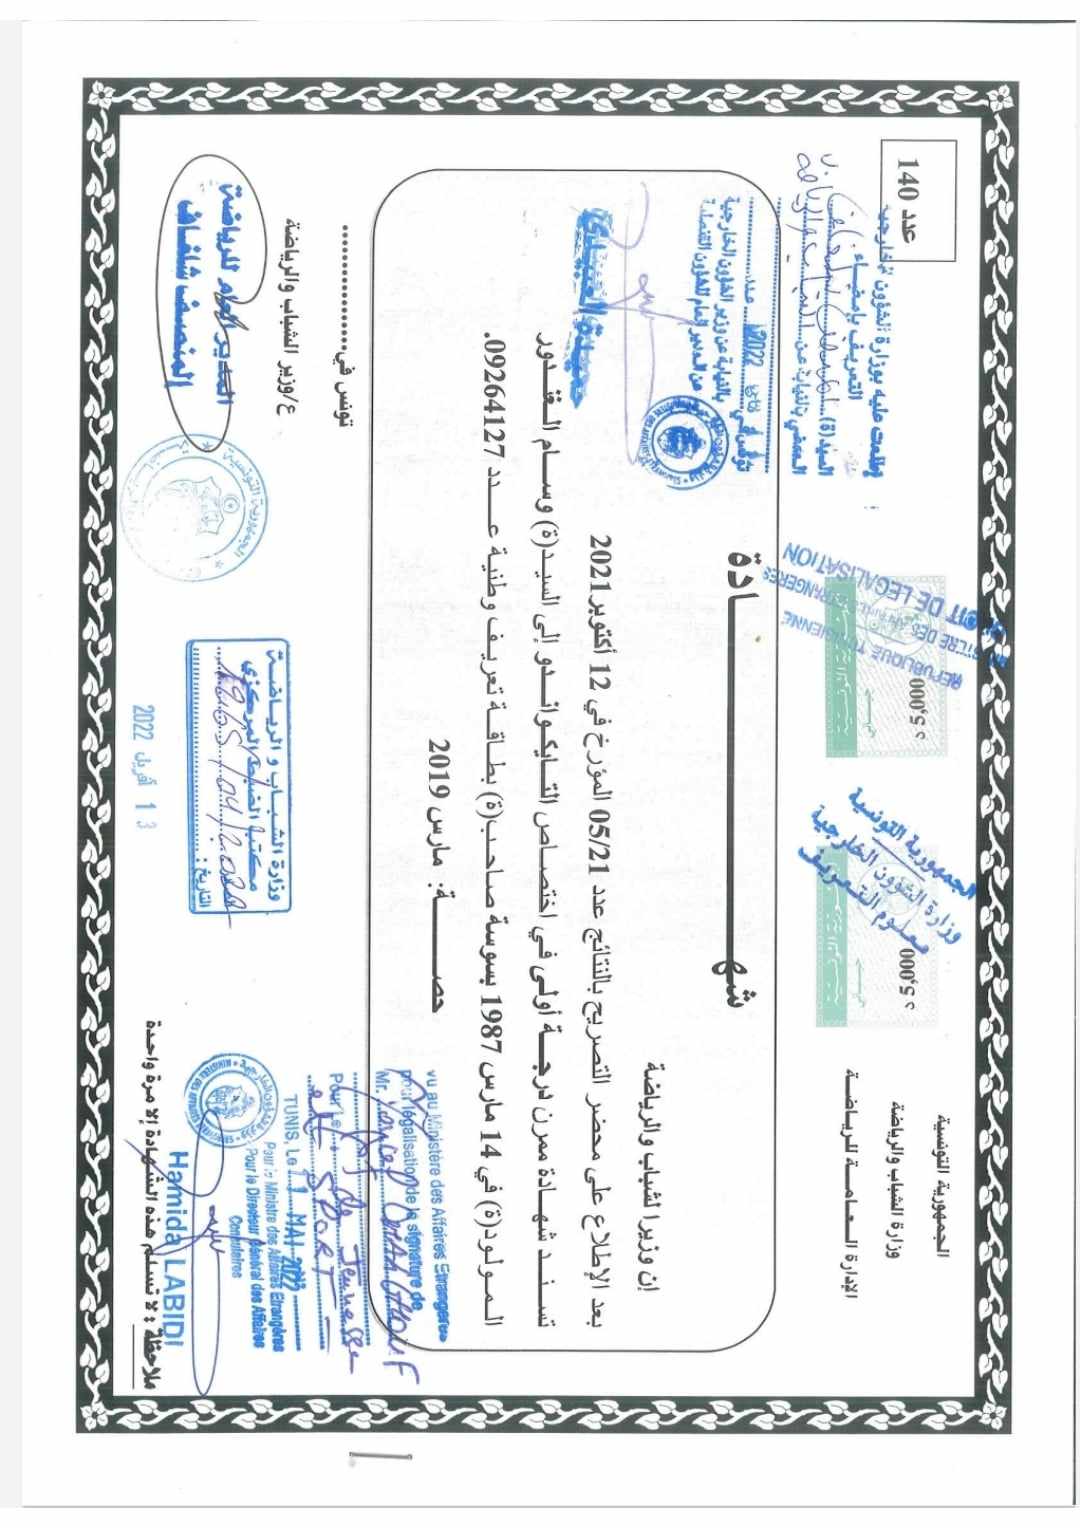 الجمهورية التونسية
وزارة الشباب والرياضة
الإدارة العامة للرياضة
عدد 140
5,000
5,000
REPUBLIQUE TUNISIENNE
DROIT DE LEGALISATION
الجمهورية التونسية
وزارة الشؤون الخارجية
معلوم التعريف
اطلعت عليه بوزارة الشؤون الخارجية
التعريف بإمضاء
السيد(ة)
الممضي بالنيابة عن
تونس في
2022
بالنيابة عن وزير الشؤون الخارجية
عن المدير العام للشؤون القنصلية
حميدة العبيدي
شهادة
إن وزير الشباب والرياضة
بعد الإطلاع على محضر التصريح بالنتائج عدد 05/21 المؤرخ في 12 أكتوبر 2021
تسند شهادة ممرن درجة أولى في اختصاص التايكواندو إلى السيد(ة) وسام الغندور
المولود(ة) في 14 مارس 1987 بسوسة صاحب(ة) بطاقة تعريف وطنية عدد 09264127.
حصة: مارس 2019
تونس في
ع/وزير الشباب والرياضة
المدير العام للرياضة
المنصف شلغاف
الجمهورية التونسية
وزارة الشباب و الرياضة
مكتب الضبط المركزي
التاريخ:
13 أفريل 2022
vu au Ministère des Affaires Etrangères
pour légalisation de la signature de
Mr.
Pour Le Jeunesse
et SPORT
TUNIS, Le 11 MAI 2022
Pour le Ministre des Affaires Etrangères
Pour le Directeur Général des Affaires
Consulaires
Hamida LABIDI
ملاحظة : لا تسلم هذه الشهادة إلا مرة واحدة